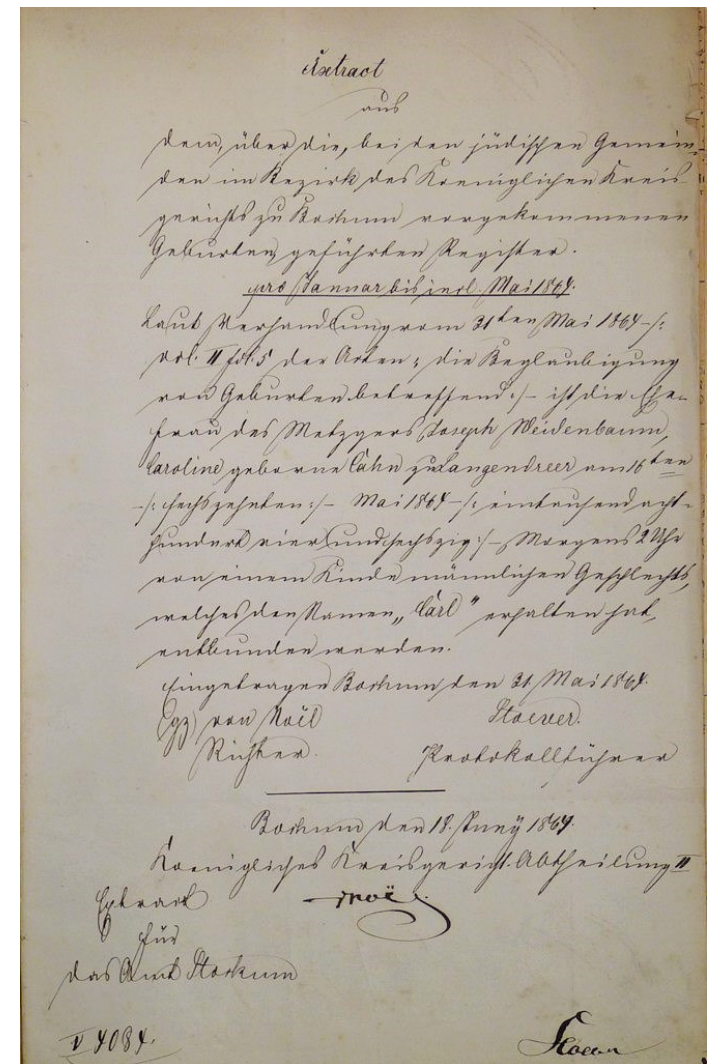 Extract
aus
dem, über die, bei den jüdischen Gemein-
den im Bezirk des Koeniglichen Kreis-
gerichts zu Bochum vorgekommenen
Geburten, geführten Register.
pro Januar bis incl. Mai 1864.
Laut Verhandlung vom 31ten Mai 1864 -/:
vol. II fol. 5 der Acten, die Beglaubigung
von Geburten betreffend :/- ist die Ehe-
frau des Metzgers Joseph Weidenbaum,
Caroline geborne Cahn zu Langendreer am 16ten
-/: sechszehnten :/- Mai 1864 -/: eintausend acht-
hundert vier und sechszig :/- Morgens 2 Uhr
von einem Kinde männlichen Geschlechts,
welches den Namen „Carl" erhalten hat,
entbunden worden.
Eingetragen Bochum den 31 Mai 1864.
(gz) von Noël Stoever.
Richter. Protokollführer
Bochum den 18. Juny 1864.
Koenigliches Kreisgericht. Abtheilung II
Noël
Extract
für
das Amt Stockum
V 4084.
Stoever